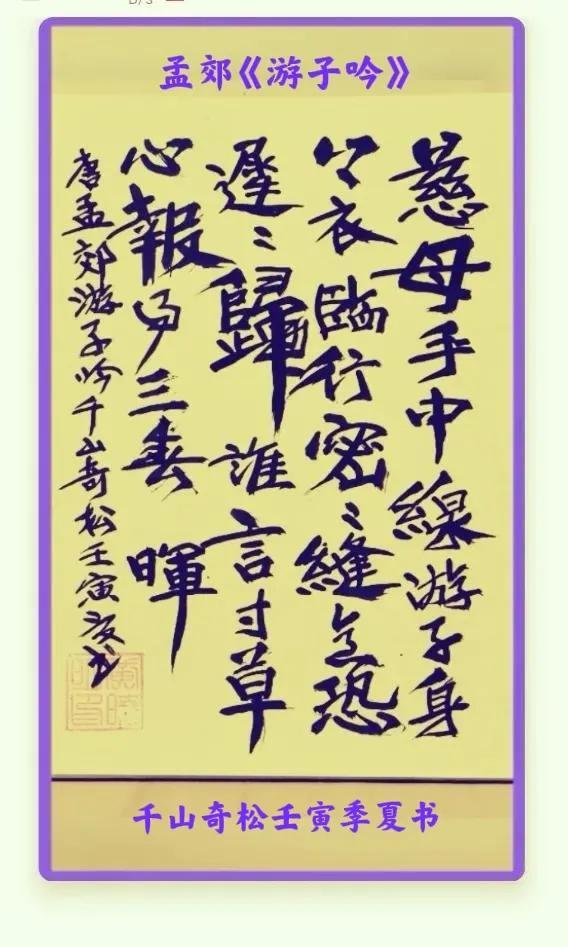 孟郊《游子吟》
慈母手中線游子身
上衣臨行密〻縫意恐
遲〻歸誰言寸草
心報得三春暉
唐孟郊游子吟千山奇松壬寅夏书
千山奇松壬寅季夏书